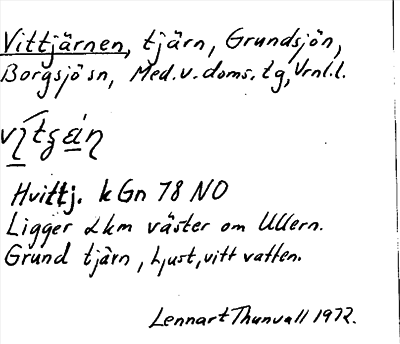 Vittjärnen, tjärn, Grundsjön,
Borgsjö sn, Med.v.doms.tg, Vrnl.l.
Hvittj. k Gn 78 NO
Ligger 2 km väster om Ullern.
Grund tjärn, ljust, vitt vatten.
Lennart Thunvall 1972.